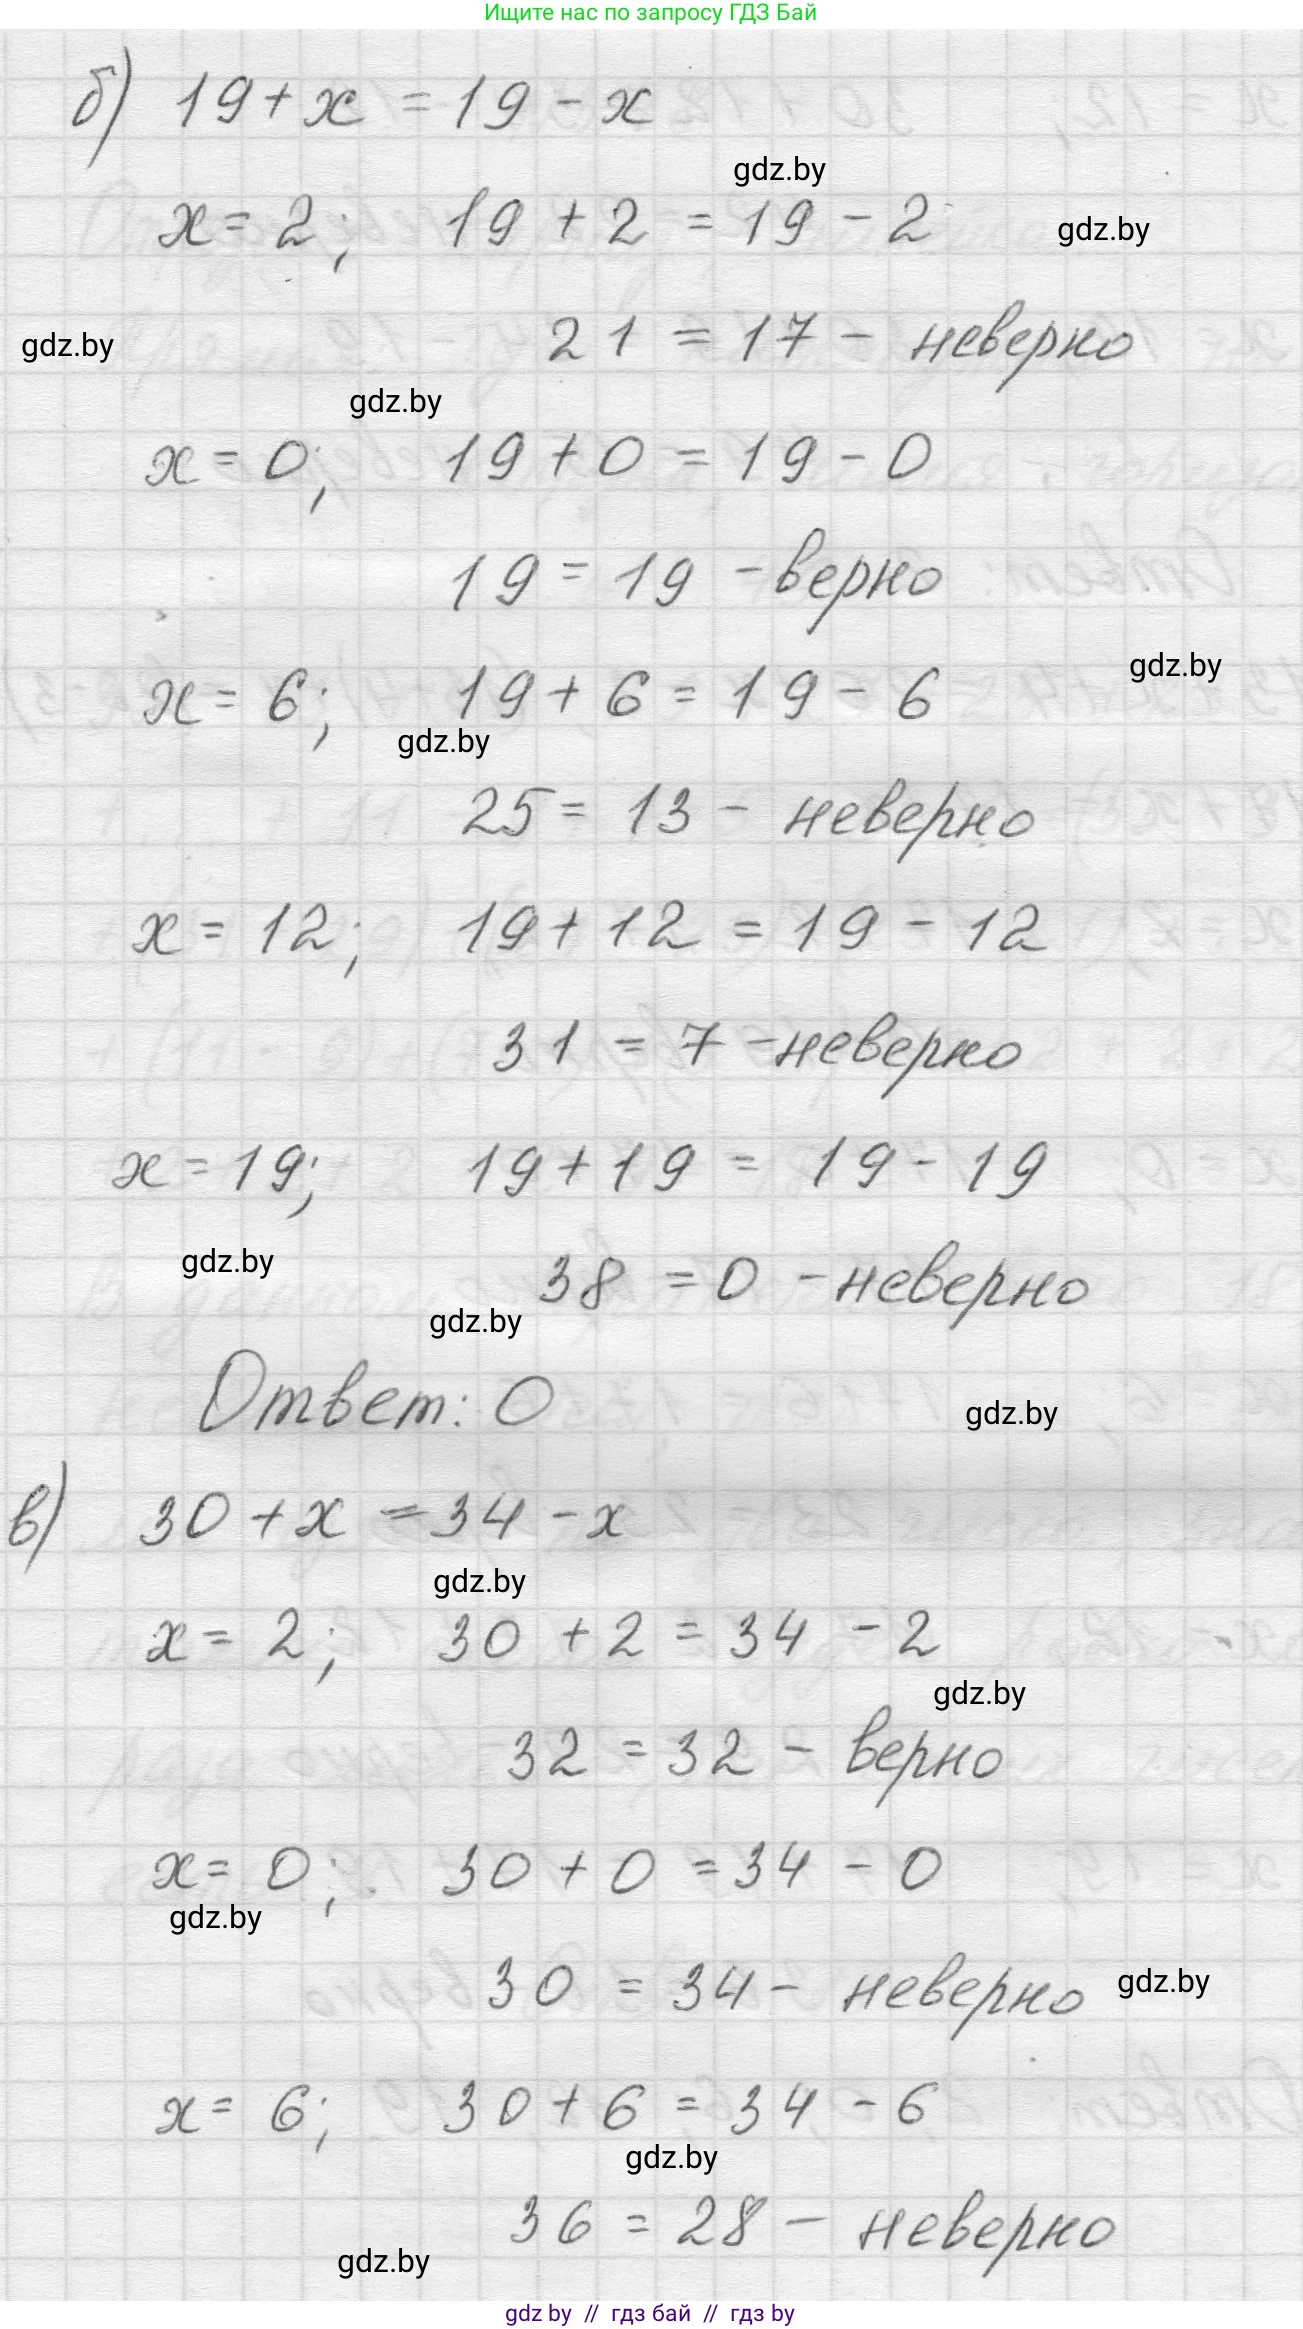 Ищите нас по запросу ГДЗ Бай
б) 19 + x = 19 - x
gdz.by
x = 2; 19 + 2 = 19 - 2
gdz.by
21 = 17 - неверно
gdz.by
gdz.by
x = 0; 19 + 0 = 19 - 0
19 = 19 - верно
gdz.by
x = 6; 19 + 6 = 19 - 6
gdz.by
25 = 13 - неверно
x = 12; 19 + 12 = 19 - 12
31 = 7 - неверно
x = 19; 19 + 19 = 19 - 19
gdz.by
38 = 0 - неверно
gdz.by
Ответ: 0
gdz.by
в) 30 + x = 34 - x
gdz.by
x = 2; 30 + 2 = 34 - 2
gdz.by
32 = 32 - верно
x = 0; 30 + 0 = 34 - 0
gdz.by
30 = 34 - неверно
gdz.by
x = 6; 30 + 6 = 34 - 6
gdz.by
36 = 28 - неверно
gdz.by
gdz by // гдз бай // гдз by